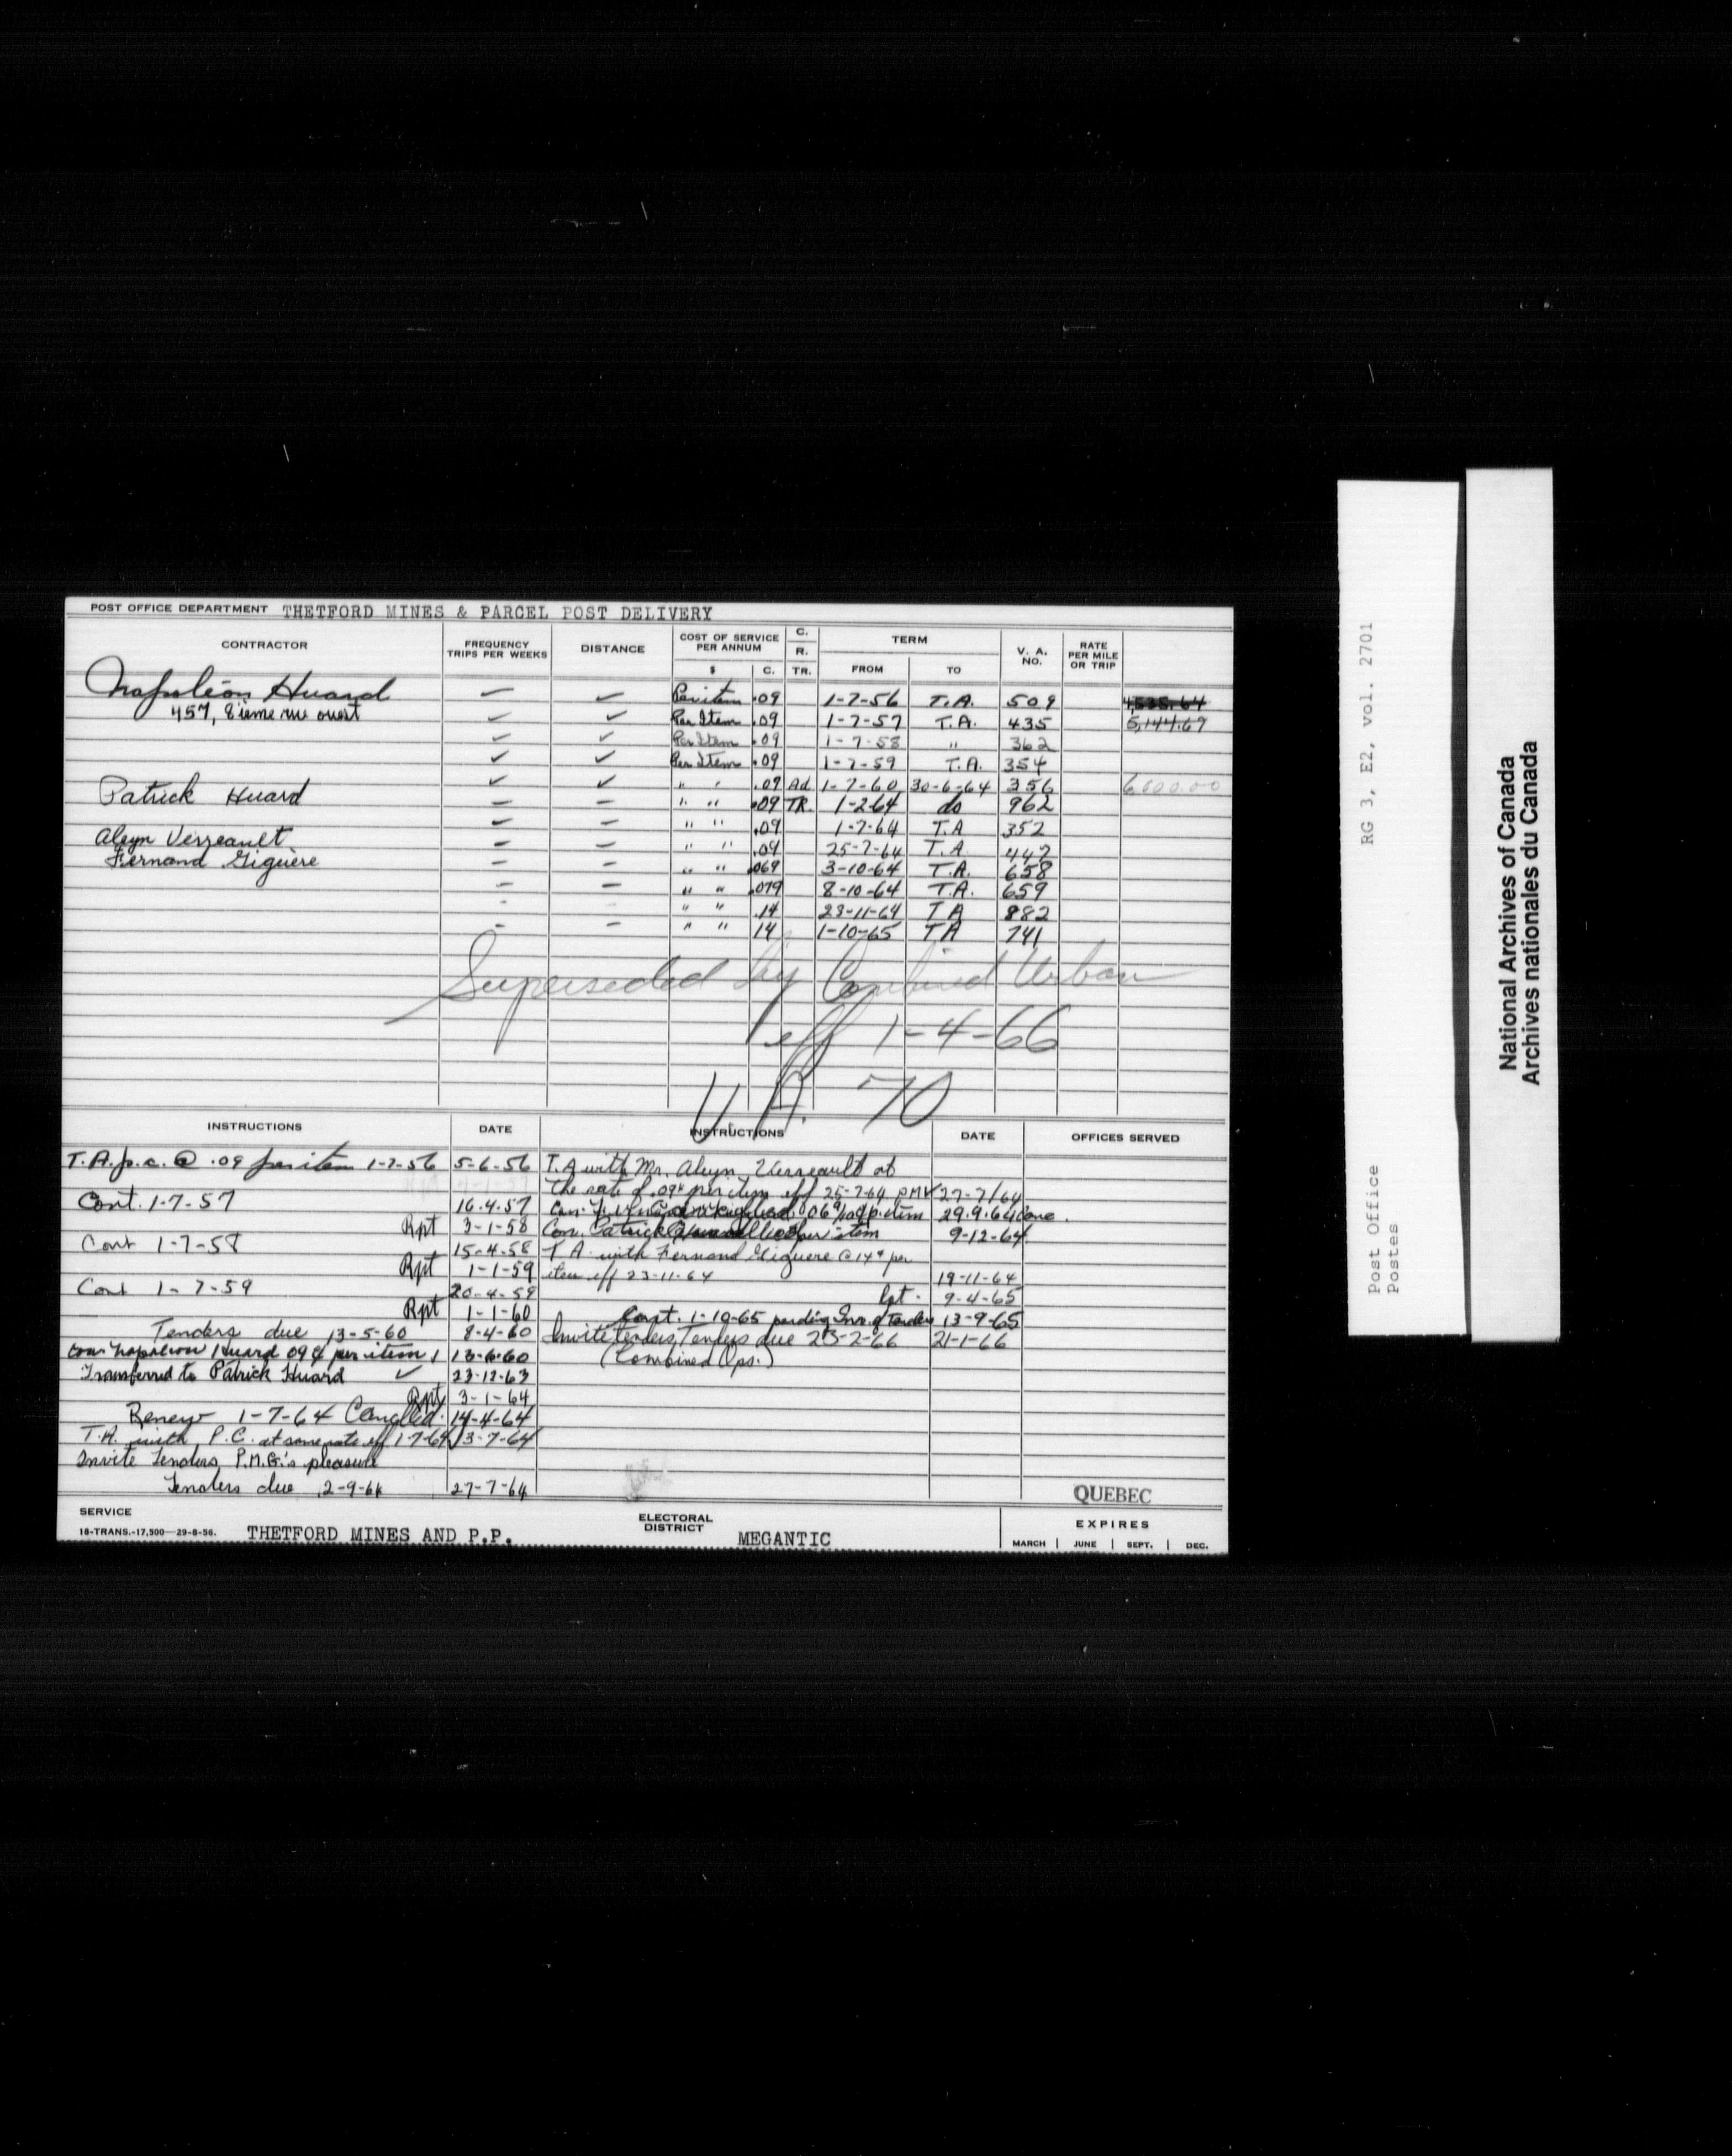 POST OFFICE DEPARTMENT THETFORD MINES & PARCEL POST DELIVERY
CONTRACTOR FREQUENCY TRIPS PER WEEKS DISTANCE COST OF SERVICE PER ANNUM $ C. C. R. TR. TERM FROM TO V. A. NO. RATE PER MILE OR TRIP
Napoléon Huard — — Per item .09 1-7-56 T.A. 509 4,535.64
457, 8ième rue ouest Per Item .09 1-7-57 T.A. 435 5,144.67
Per Item .09 1-7-58 " 362
Per Item .09 1-7-59 T.A. 354
" " .09 Ad 1-7-60 30-6-64 356 6,000.00
Patrick Huard — — " " .09 TR. 1-2-64 do 962
" " .09 1-7-64 T.A 352
Aleyn Verreault — — " " .09 25-7-64 T.A. 447
Fernand Giguère — — " " .069 3-10-64 T.A. 658
— — " " .079 8-10-64 T.A. 659
" " .14 23-11-64 TA 882
" " 14 1-10-65 TA 741
Superseded by Combined Urban
eff 1-4-66
V. A. 70
INSTRUCTIONS DATE INSTRUCTIONS DATE OFFICES SERVED
T.A. p.c. @ .09 per item 1-7-56 5-6-56
Cont. 1-7-57 16.4.57
Rpt 3-1-58
Cont 1-7-58 15-4-58
Rpt 1-1-59
Cont 1-7-59 20-4-59
Rpt 1-1-60
Tenders due 13-5-60 8-4-60
Con. Napoleon Huard 09¢ per item 13-6-60
Transferred to Patrick Huard ✓ 23-12-63
Rpt 3-1-64
Renew 1-7-64 Cancelled. 14-4-64
T.A. with P.C. at same rate eff 1-7-64 3-7-64
Invite Tenders P.M.G.'s pleasure
Tenders due 2-9-64 27-7-64
T.A with Mr. Aleyn Verreault at
the rate of .09¢ per item eff 25-7-64 27-7/64
Con. 29.9.64
Con. Patrick per item 9-12-64
T A. with Fernand Giguere @ 14¢ per
item eff 23-11-64 19-11-64
Rpt. 9-4-65
Cont. 1-10-65 pending Inv. of Tenders 13-9-65
Invite Tenders, Tenders due 23-2-66 21-1-66
(Combined Ops.)
QUEBEC
SERVICE
18-TRANS.-17,500—29-8-56. THETFORD MINES AND P.P. ELECTORAL DISTRICT MEGANTIC EXPIRES
MARCH | JUNE | SEPT. | DEC.
RG 3, E2, vol. 2701
Post Office
Postes
National Archives of Canada
Archives nationales du Canada